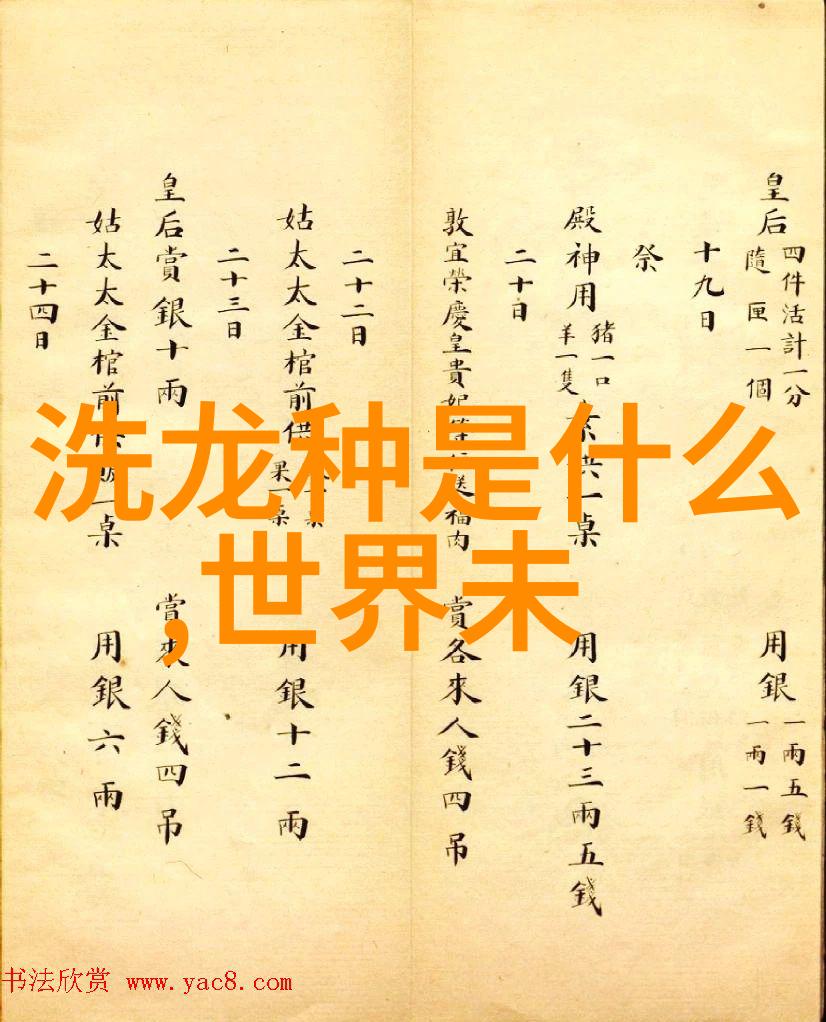 皇后 四件活計一分
隨匣一個 用銀 一兩五錢
一兩一錢
十九日
祭
殿神用 豬一口
羊一隻 素供一桌 用銀二十三兩五錢
二十日
敦宜榮慶皇貴妃 送福肉 賞各來人錢四吊
二十二日
姑太太金棺前供
果一桌 用銀十二兩
二十三日
皇后賞銀十兩 賞來人錢四吊
姑太太金棺前供飯一桌 用銀六兩
二十四日
洗龙种是什么
,世界未
书法欣赏 www.yac8.com